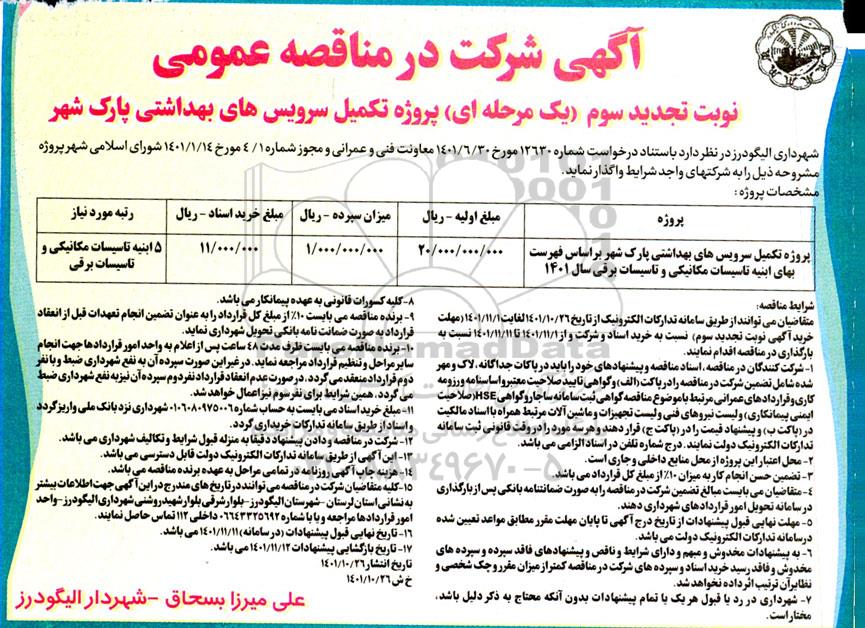 آگهی شرکت در مناقصه عمومی
نوبت تجدید سوم (یک مرحله ای) پروژه تکمیل سرویس های بهداشتی پارک شهر
شهرداری الیگودرز در نظر دارد باستناد درخواست شماره ۱۲۶۳۰ مورخ ۱۴۰۱/۶/۳۰ معاونت فنی و عمرانی و مجوز شماره ۴/۱ مورخ ۱۴۰۱/۱/۱۴ شورای اسلامی شهر پروژه
مشروحه ذیل را به شرکتهای واجد شرایط واگذار نماید.
مشخصات پروژه :
پروژه	مبلغ اولیه - ریال	میزان سپرده - ریال	مبلغ خرید اسناد - ریال	رتبه مورد نیاز
پروژه تکمیل سرویس های بهداشتی پارک شهر براساس فهرست	۲۰/۰۰۰/۰۰۰/۰۰۰	۱/۰۰۰/۰۰۰/۰۰۰	۱۱/۰۰۰/۰۰۰	۵ ابنیه تاسیسات مکانیکی و
بهای ابنیه تاسیسات مکانیکی و تاسیسات برقی سال ۱۴۰۱	تاسیسات برقی
شرایط مناقصه:
متقاضیان می توانند از طریق سامانه تدارکات الکترونیک از تاریخ ۱۴۰۱/۱۰/۲۶ لغایت ۱۴۰۱/۱۱/۱ (مهلت
خرید آگهی نوبت تجدید سوم) نسبت به خرید اسناد و شرکت و از ۱۴۰۱/۱۱/۱ تا ۱۴۰۱/۱۱/۱۱ نسبت به
بارگذاری در مناقصه اقدام نمایند.
۱- شرکت کنندگان در مناقصه، اسناد مناقصه و پیشنهادهای خود را باید در پاکات جداگانه، لاک و مهر
شده شامل تضمین شرکت در مناقصه را در پاکت (الف) و گواهی تایید صلاحیت معتبر و اساسنامه و رزومه
کاری و قراردادهای عمرانی مرتبط با موضوع مناقصه گواهی ثبت سامانه ساجار و گواهی HSE (صلاحیت
ایمنی پیمانکاری) ولیست نیروهای فنی ولیست تجهیزات و ماشین آلات مرتبط همراه با اسناد مالکیت
در (پاکت ب) و پیشنهاد قیمت را در (پاکت ج) قرار دهند و هر سه مورد را در وقت قانونی ثبت سامانه
تدارکات الکترونیک دولت نمایند. درج شماره تلفن در اسناد الزامی می باشد.
۲- محل اعتبار این پروژه از محل منابع داخلی و جاری است.
۳- تضمین حسن انجام کار به میزان ۱۰٪ از مبلغ کل قرارداد می باشد.
۴- متقاضیان می بایست مبالغ تضمین شرکت در مناقصه را به صورت ضمانتنامه بانکی پس از بارگذاری
در سامانه تحویل امور قراردادهای شهرداری دهند.
۵- مهلت نهایی قبول پیشنهادات از تاریخ درج آگهی تا پایان مهلت مقرر مطابق مواعد تعیین شده
در سامانه تدارکات الکترونیک دولت می باشد.
۶- به پیشنهادات مخدوش و مبهم و دارای شرایط و ناقص و پیشنهادهای فاقد سپرده و سپرده های
مخدوش و فاقد رسید خرید اسناد و سپرده های شرکت در مناقصه کمتر از میزان مقرر و چک شخصی و
نظایر آن ترتیب اثر داده نخواهد شد.
۷- شهرداری در رد یا قبول هر یک یا تمام پیشنهادات بدون آنکه محتاج به ذکر دلیل باشد،
مختار است.
۸- کلیه کسورات قانونی به عهده پیمانکار می باشد.
۹- برنده مناقصه می بایست ۱۰٪ از مبلغ کل قرارداد را به عنوان تضمین انجام تعهدات قبل از انعقاد
قرارداد به صورت ضمانت نامه بانکی تحویل شهرداری نماید.
۱۰- برنده مناقصه می بایست ظرف مدت ۴۸ ساعت پس از اعلام به واحد امور قراردادها جهت انجام
سایر مراحل و تنظیم قرارداد مراجعه نماید. در غیر این صورت سپرده آن به نفع شهرداری ضبط و با نفر
دوم قرارداد منعقد می گردد. در صورت عدم انعقاد قرارداد نفر دوم سپرده آن نیز به نفع شهرداری ضبط
می گردد، همین شرایط برای نفر سوم نیز اعمال خواهد شد.
۱۱- مبلغ خرید اسناد می بایست به حساب شماره ۰۱۰۶۰۸۰۹۷۵۰۰۶ شهرداری نزد بانک ملی واریز گردد
و اسناد از طریق سامانه تدارکات خریداری گردد.
۱۲- شرکت در مناقصه و دادن پیشنهاد دقیقا به منزله قبول شرایط و تکالیف شهرداری می باشد.
۱۳- این آگهی از طریق سامانه تدارکات الکترونیک دولت قابل دسترسی می باشد.
۱۴- هزینه چاپ آگهی روزنامه در تمامی مراحل به عهده برنده مناقصه می باشد.
۱۵- کلیه متقاضیان شرکت در مناقصه می توانند در تاریخ های مندرج در این آگهی جهت اطلاعات بیشتر
به نشانی استان لرستان - شهرستان الیگودرز - بلوار شرقی بلوار شهید روشنی شهرداری الیگودرز - واحد
امور قراردادها مراجعه و یا با شماره ۰۶۶۴۳۳۳۵۶۹۲ داخلی ۱۱۲ تماس حاصل نمایند.
۱۶- تاریخ نهایی قبول پیشنهادات (در سامانه) ۱۴۰۱/۱۱/۱۱ می باشد.
۱۷- تاریخ بازگشایی پیشنهادات ۱۴۰۱/۱۱/۱۲ می باشد.
تاریخ انتشار ۱۴۰۱/۱۰/۲۶
خ ش ۱۴۰۱/۱۰/۲۶
علی میرزا بسحاق - شهردار الیگودرز